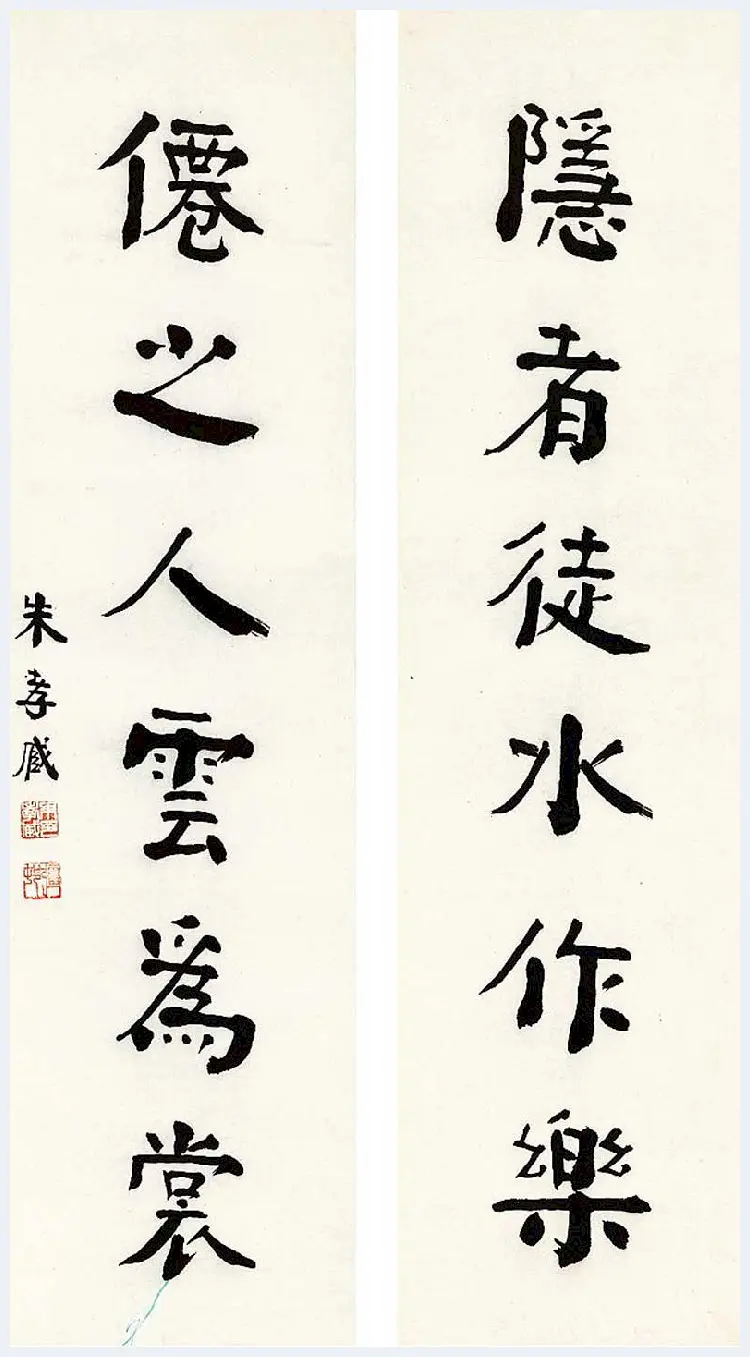 隱者徒水作樂
僊之人雲為裳
朱孝臧